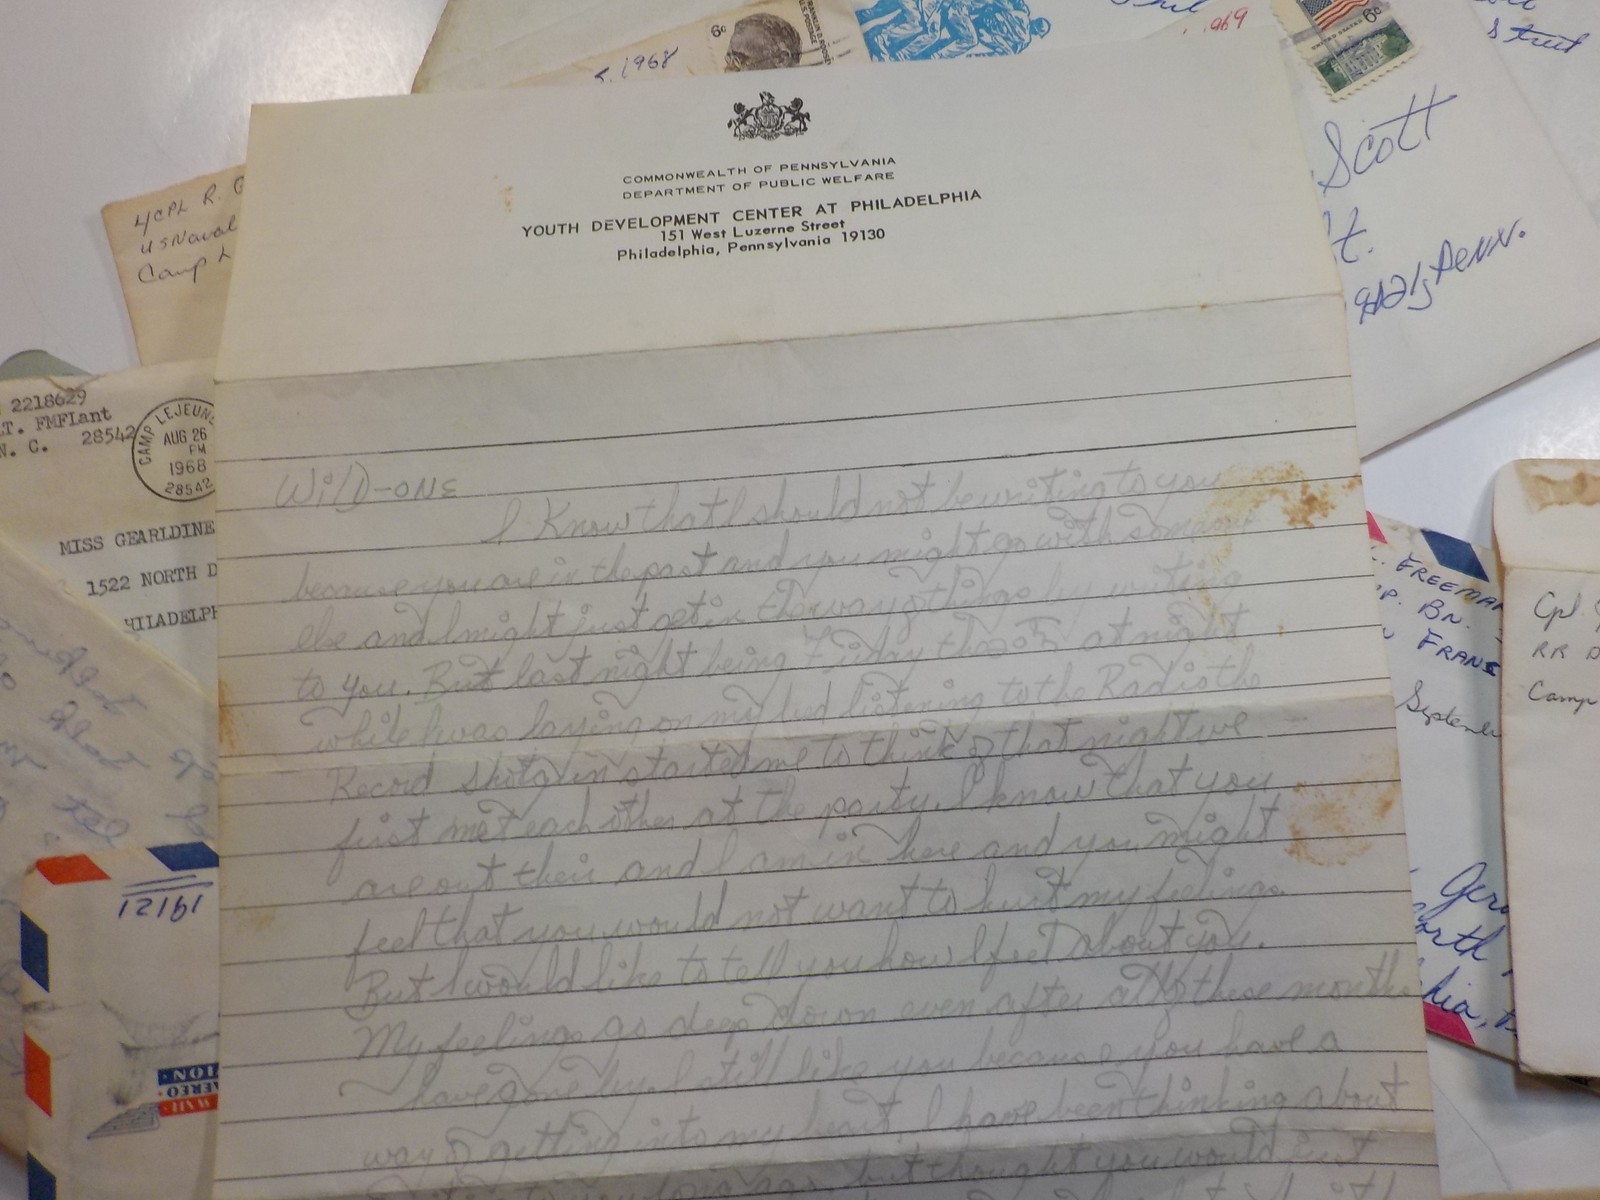 s. 1968
6c
FRANKLIN D. ROOSEVELT
U.S. POSTAGE
Phil
1969
6c
UNITED STATES
Street
Scott
St.
Penn.
L/CPL R.
US Naval
Camp L
2218629
FMFLant
N. C. 28542
CAMP LEJEUNE
AUG 26
PM
1968
28542
MISS GEARLDINE
1522 NORTH D
PHILADELPH
COMMONWEALTH OF PENNSYLVANIA
DEPARTMENT OF PUBLIC WELFARE
YOUTH DEVELOPMENT CENTER AT PHILADELPHIA
151 West Luzerne Street
Philadelphia, Pennsylvania 19130
Wild-one
I Know that I should not be writing to you
because you are in the past and you might go with someone
else and I might just get in the way of things by writing
to you. But last night being Friday the 25 at night
while I was laying on my bed listening to the Radio the
Record Shotgun started me to think of that night we
first met each other at the party. I know that you
are out their and I am in here and you might
feel that you would not want to hurt my feelings.
But I would like to tell you how I feel about you.
My feelings go deep down even after all of these months
have gone by. I still like you because you have a
way of getting into my heart. I have been thinking about
but thought you would just
FREEMAN
BN.
FRANS
September
North
Cpl
RR
Camp
12161
AEREO